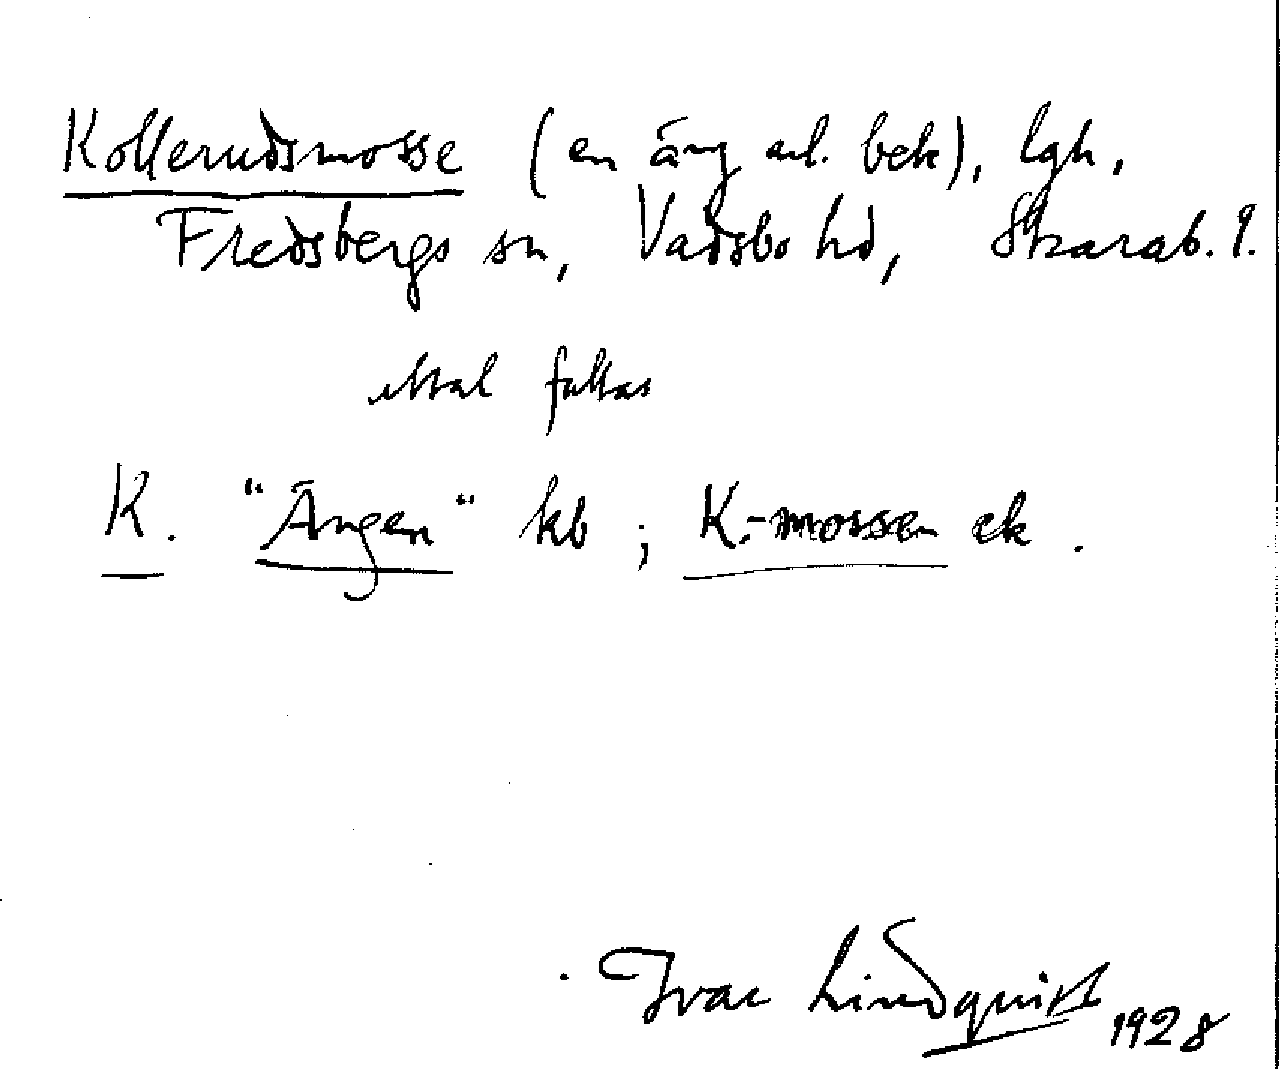 Kollerudsmosse (en äng enl. bek), lgh,
Fredsbergs sn, Vadsbo hd, Skarab. l.
uttal fattas
K. "Ängen" kb ; K.-mossen ek.
Ivar Lindquist 1928